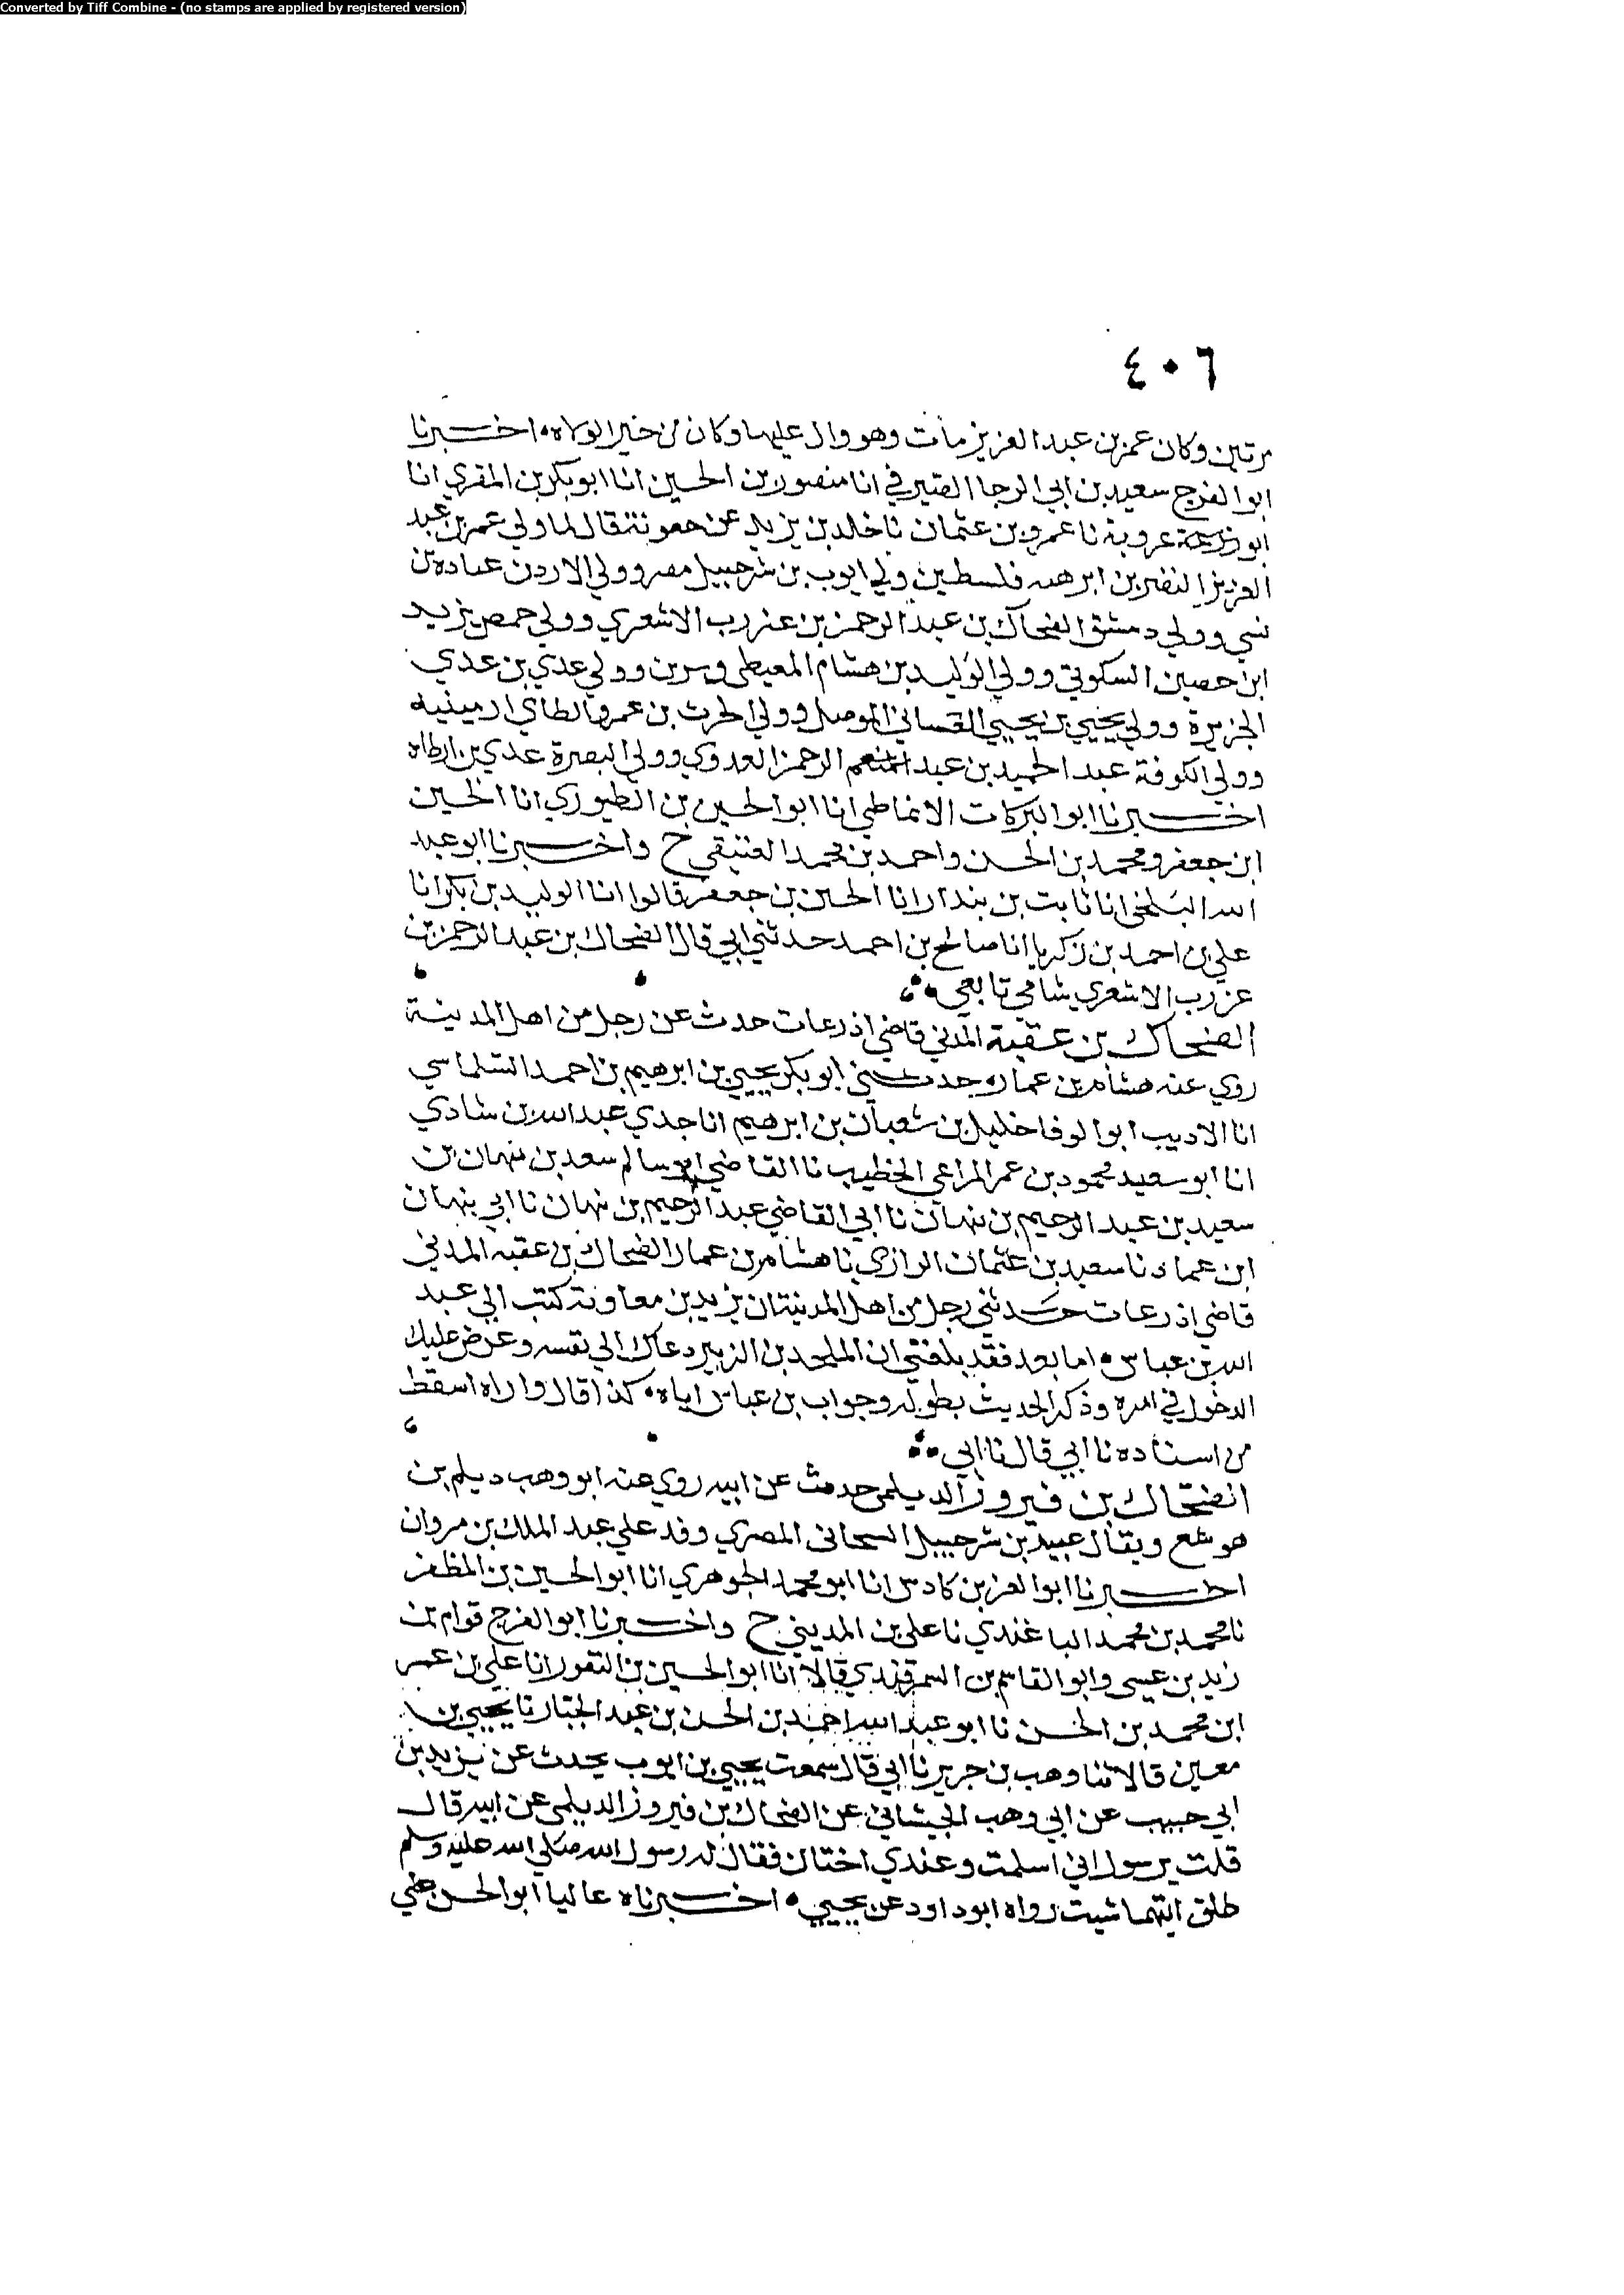 Converted by Tiff Combine - (no stamps are applied by registered version)
٤٠٦
مرتين وكان عمر بن عبد العزيز مات وهو وال عليها وكان من خير الولاه اخـبرنا
ابو الفرج سعيد بن ابي الرجا الصيرفي انا منصور بن الحسين انا ابو بكر بن المقري انا
ابو عروبة نا عمرو بن عثمان نا خالد بن يزيد عن جعونة قال لما ولي عمر بن عبد
العزيز النضر بن ابرهه فلسطين ولي ايوب بن شرحبيل مصر وولي الاردن عباده بن
نسي وولي دمشق الضحاك بن عبد الرحمن بن عزرب الاشعري وولي حمص يزيد
ابن حصين السكوني وولي الوليد بن هشام المعيطي وولي عدي بن عدي
الجزيرة وولي يحيي بن يحيي الغساني الموصل وولي الحرث بن عمرو الطاي ارمينيه
وولي الكوفة عبد الحميد بن عبد الرحمن العدوي وولي البصرة عدي بن ارطاه
اخـبرنا ابو البركات الانماطي انا ابو الحسين بن الطيوري انا الحسين
ابن جعفر ومحمد بن الحسن واحمد بن محمد العتيقي ح واخـبرنا ابو عبد
الله البلخي انا ثابت بن بندار انا الحسين بن جعفر قالوا انا الوليد بن بكر انا
علي بن احمد بن زكريا انا صالح بن احمد حدثني ابي قال الضحاك بن عبد الرحمن بن
عزرب الاشعري شامي تابعي
الضحاك بن عقبة المدني قاضي اذرعات حدث عن رجل من اهل المدينة
روي عنه هشام بن عمار حدثني ابو بكر يحيي بن ابرهيم بن احمد السلماسي
انا الاديب ابو الوفا خليل بن شعبان بن ابرهيم انا جدي عبد الله بن شادي
انا ابو سعيد محمود بن عمر المراعي الخطيب نا القاضي ابو سالم سعد بن نبهان بن
سعيد بن عبد الرحيم بن نبهان نا ابي القاضي عبد الرحيم بن نبهان نا ابي نبهان
ابن عماد نا سعيد بن عثمان الرازي نا هشام بن عمار الضحاك بن عقبة المدني
قاضي اذرعات حدثني رجل من اهل المدينة ان يزيد بن معاوية كتب الي عبد
الله بن عباس اما بعد فقد بلغني ان الملحد بن الزبير دعاك الي نفسه وعرض عليك
الدخول في امره وذكر الحديث بطوله وجواب بن عباس اياه كذا قال واراه اسقط
من اسناده نا ابي قال نا ابي
الضحاك بن فيروز الديلمي حدث عن ابيه روي عنه ابو وهب ديلم بن
هوشع ويقال عبيد بن شرحبيل المصري وفد علي عبد الملك بن مروان
اخـبرنا ابو العز بن كادس انا ابو محمد الجوهري انا ابو الحسين بن المظفر
نا محمد بن محمد الباغندي نا علي بن المديني ح واخـبرنا ابو الفرج قوام بن
زيد بن عيسي وابو القاسم بن السمرقندي قالا انا ابو الحسين بن النقور انا علي بن عمر
ابن محمد بن الحسن نا ابو عبد الله احمد بن الحسن بن عبد الجبار نا يحيي بن
معين قالا ثنا وهب بن جرير نا ابي قال سمعت يحيي بن ايوب يحدث عن يزيد بن
ابي حبيب عن ابي وهب الجيشاني عن الضحاك بن فيروز الديلمي عن ابيه قال
قلت يرسول اني اسلمت وعندي اختان فقال له رسول الله صلي الله عليه وسلم
طلق ايتهما شيت رواه ابو داود عن يحيي اخـبرناه عاليا ابو الحسن علي